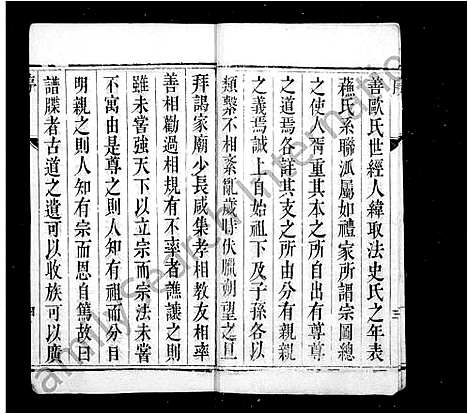 善歐氏世經人緯取法史氏之年表
蘓氏系聯派屬如禮家所謂宗圖總
之使人胥重其本之所自出有尊尊
之道焉各詳其支之所由分有親親
之義焉誠上自始祖下及子孫各以
類繫不相紊亂歲時伏臘朔望之旦
拜謁家廟少長咸集孝相敎友相率
善相勸過相規有不率者譙讓之則
雖未嘗強天下以立宗而宗法未嘗
不寓由是尊之則人知有祖而分目
明親之則人知有宗而恩自篤故曰
譜牒者古道之遺可以收族可以廣
序
三
序
四
FamilySearch International